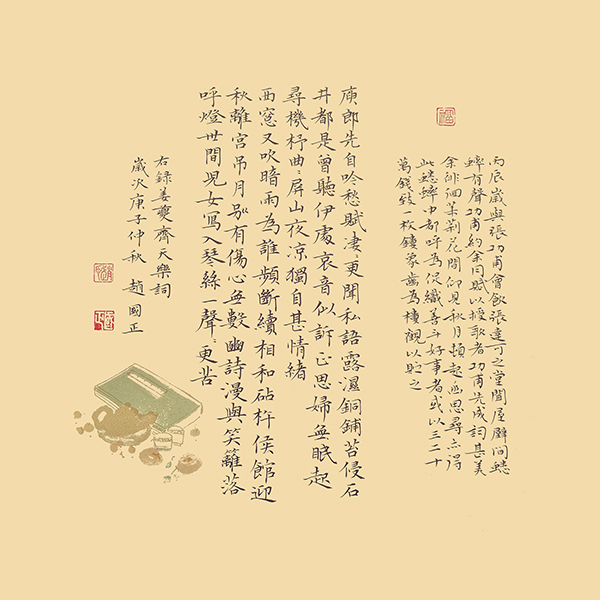 丙辰歲與張功甫會飲張達可之堂聞屋壁間蟋
蟀有聲功甫約余同賦以授歌者功甫先成詞甚美
余徘徊茉莉花間仰見秋月頓起幽思尋亦得
此蟋蟀中都呼為促織善斗好事者或以三二十
萬錢致一枚鏤象齒為樓觀以貯之
庾郎先自吟愁賦凄〻更聞私語露濕銅鋪苔侵石
井都是曾聽伊處哀音似訴正思婦無眠起
尋機杼曲〻屏山夜涼獨自甚情緒
西窓又吹暗雨為誰頻斷續相和砧杵侯館迎
秋離宮吊月別有傷心無數幽詩漫與笑籬落
呼燈世間兒女寫入琴絲一聲〻更苦
右錄姜夔齊天樂詞
歲次庚子仲秋 趙國正